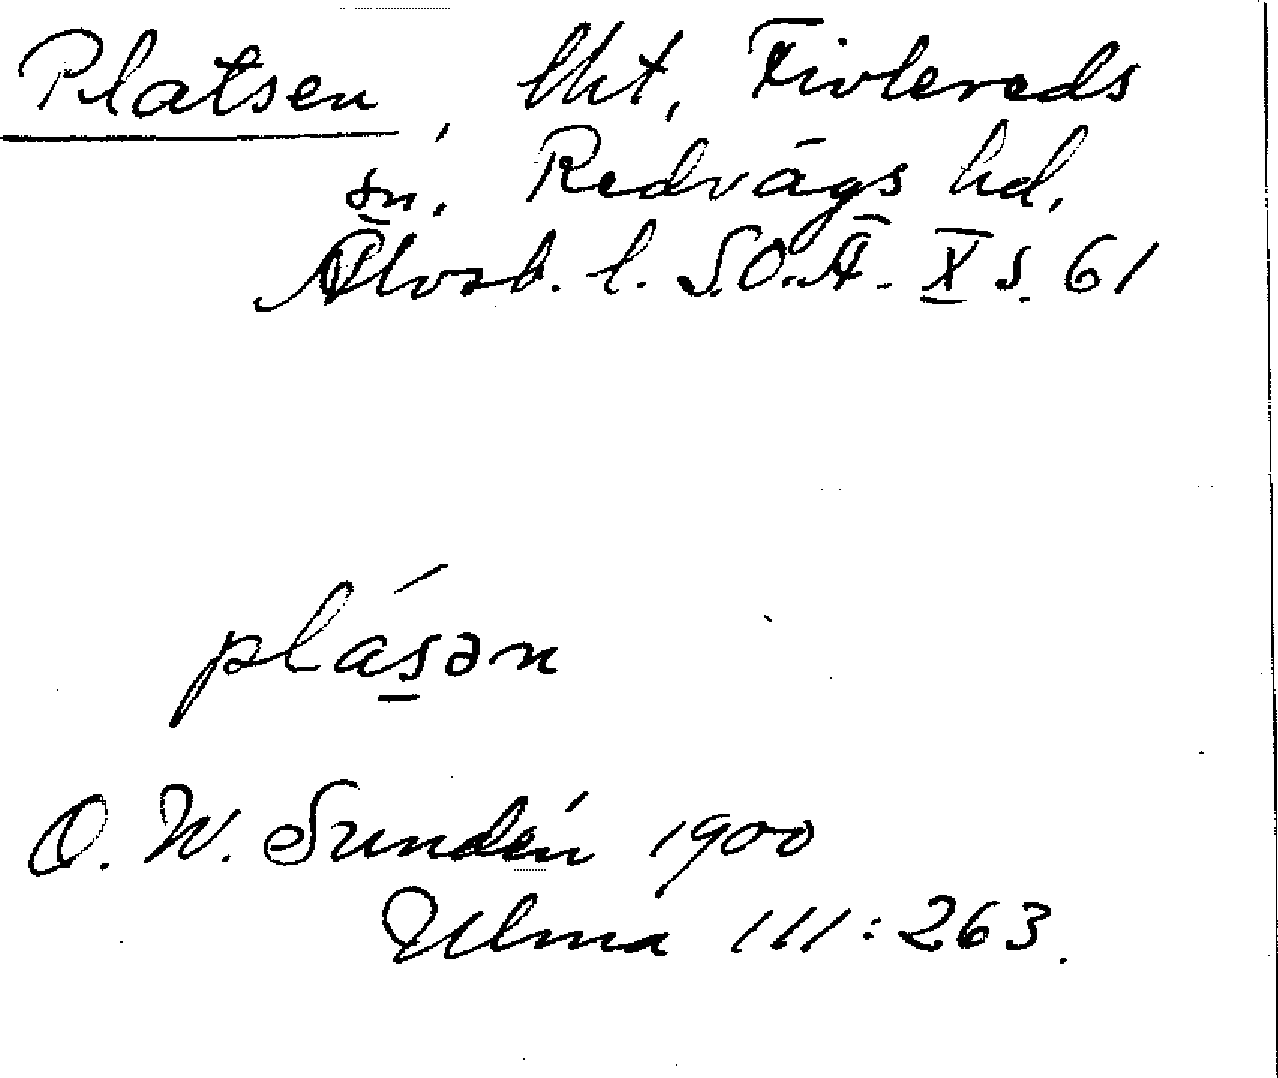 Platsen, lht, Fivlereds
sn. Redvägs hd.
Älvsb. l. S.O.Ä. X s. 61
plásən
O. W. Sundén 1900
Ulma 111:263.